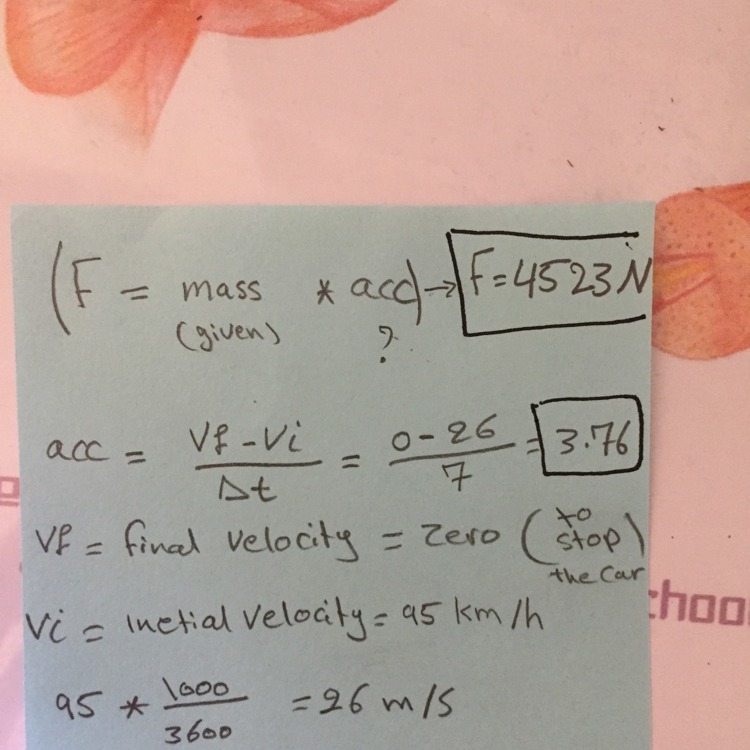 (F = mass * acc) → F = 4523 N
(given) ?
acc = Vf - Vi / Δt = 0 - 26 / 7 = 3.76
Vf = final velocity = Zero (to stop the Car)
Vi = inetial velocity = 95 km/h
95 * 1000 / 3600 = 26 m/s
choo